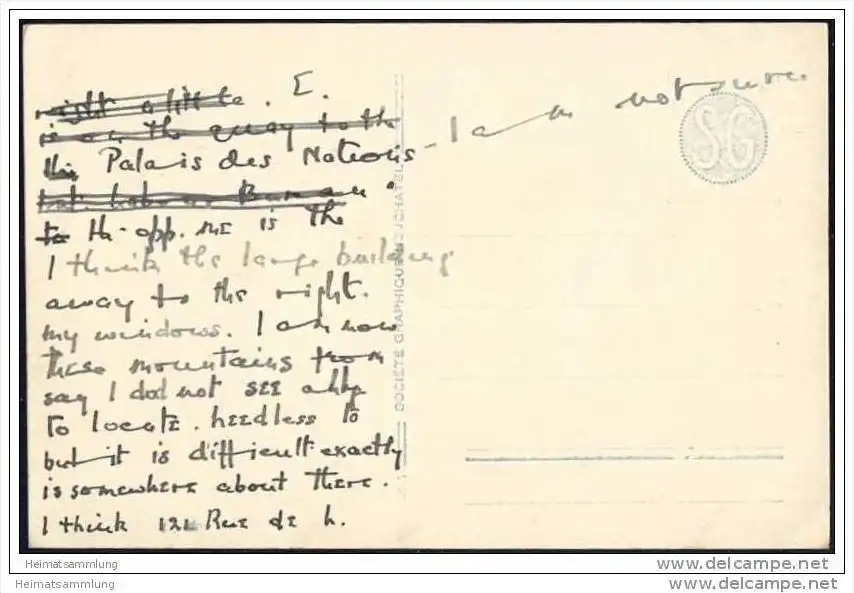 right a little. E.
is on the quay to the
Palais des Nations - I am not sure
to th- opp. me is the
I think the large building
away to the right.
my windows. I am now
these mountains from
say I did not see all
to locate. needless to
but it is difficult exactly
is somewhere about there.
I think 121 Rue de L.
SOCIÉTÉ GRAPHIQUE NEUCHATEL
SG
Heimatsammlung
Heimatsammlung
www.delcampe.net
www.delcampe.net